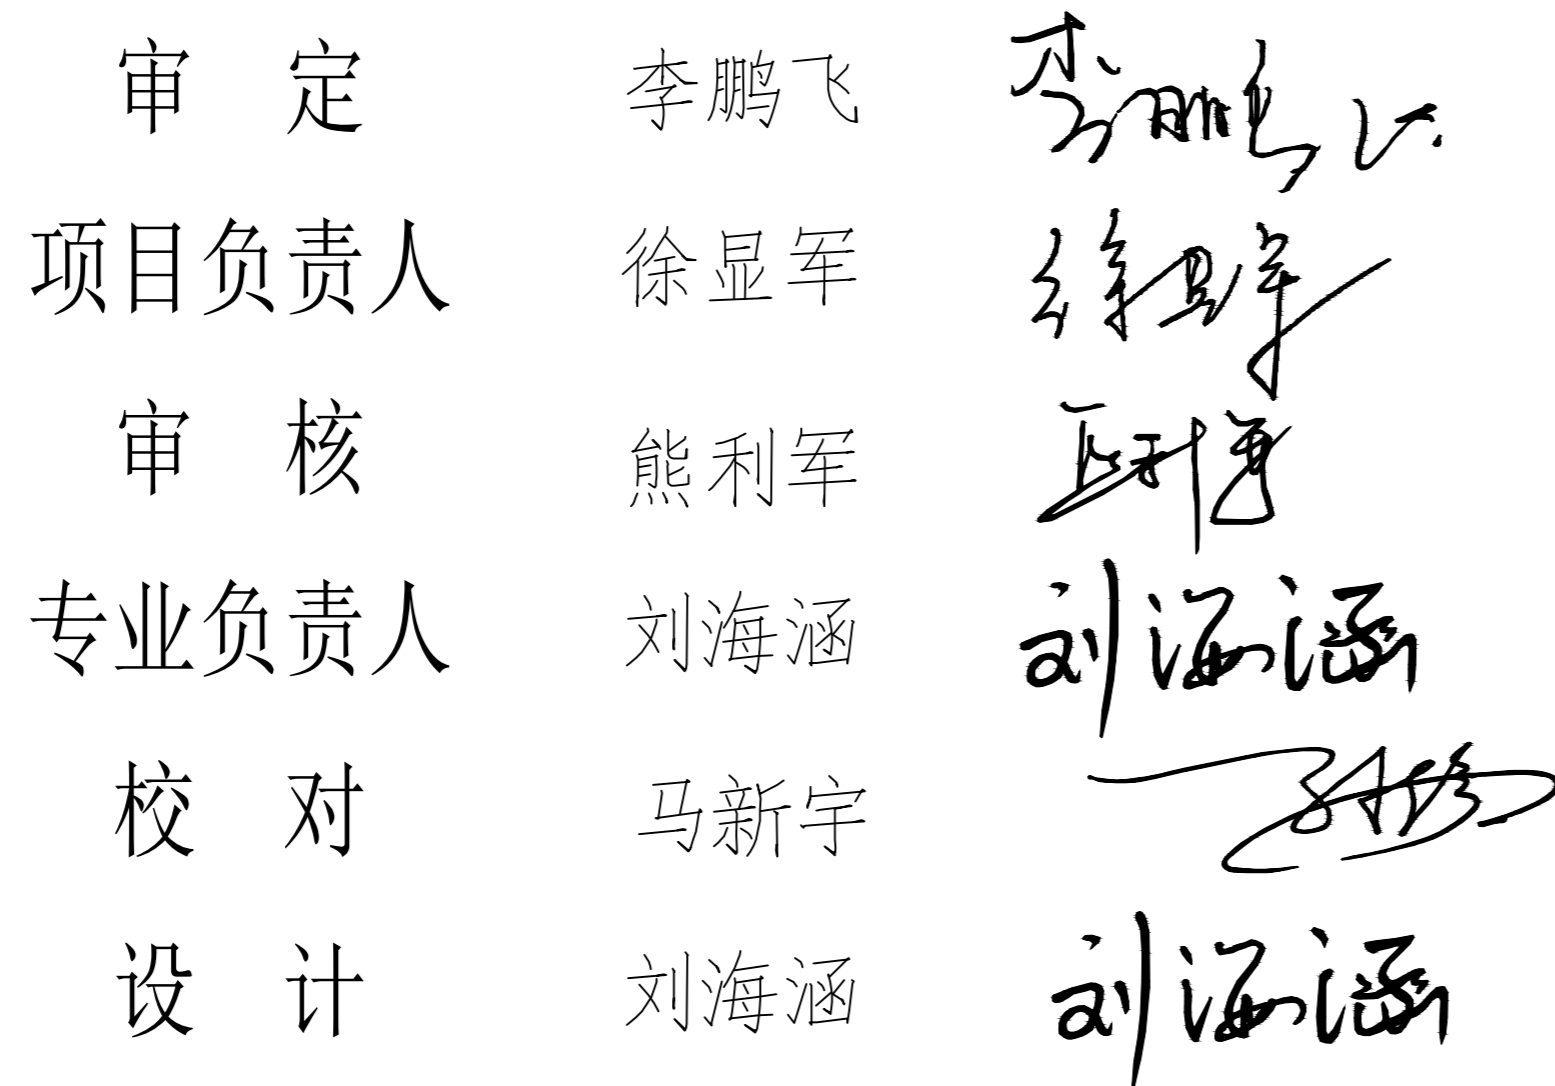 审 定 李鹏飞 李鹏飞
项目负责人 徐显军 徐显军
审 核 熊利军 熊利军
专业负责人 刘海涵 刘海涵
校 对 马新宇
设 计 刘海涵 刘海涵